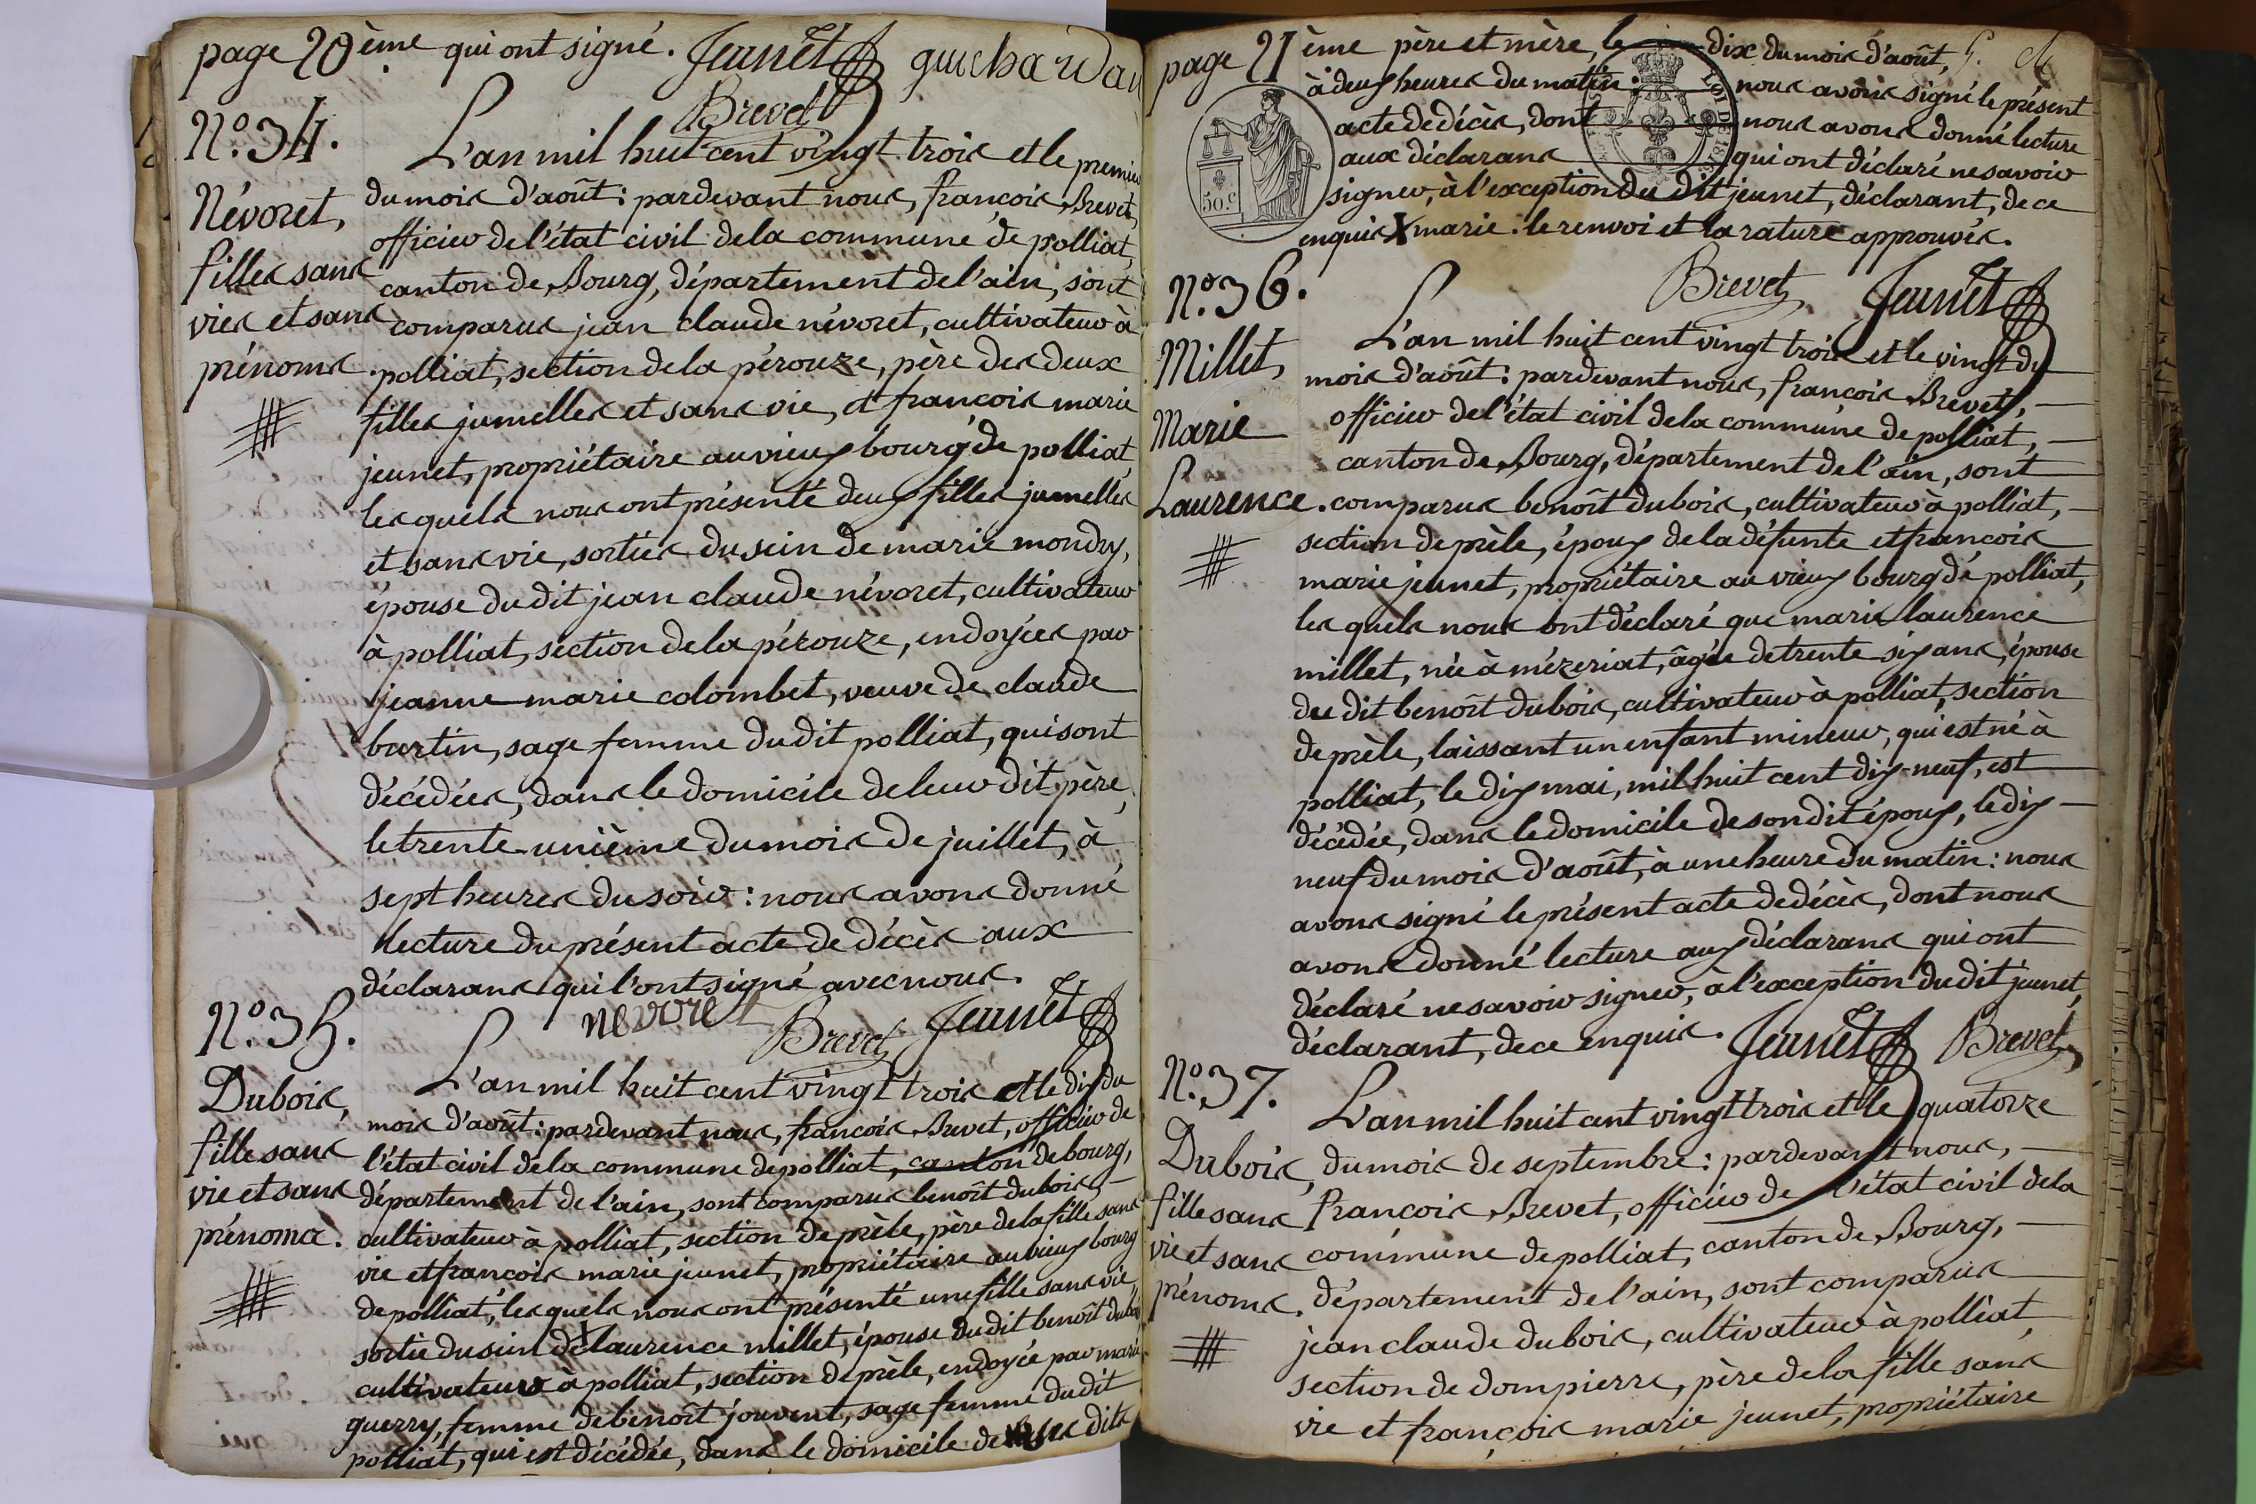 page 20ème qui ont signé. Jeunet
Brevet
N.º 34.
Névoret,
filles sans
vies et sans
prénoms.
L'an mil huit cent vingt trois et le premier
du mois d'août : pardevant nous, françois Brevet,
officier de l'état civil de la commune de polliat,
canton de Bourg, département de l'ain, sont
comparus jean claude névoret, cultivateur à
polliat, section de la pérouze, père des deux
filles jumelles et sans vie, et françois marie
jeunet, propriétaire au vieux bourg de polliat,
les quels nous ont présenté deux filles jumelles
et sans vie, sorties du sein de marie mondry,
épouse du dit jean claude névoret, cultivateur
à polliat, section de la pérouze, endoyées par
jeanne marie colombet, veuve de claude
bertin, sage femme du dit polliat, qui sont
décédées, dans le domicile de leur dit père,
le trente-unième du mois de juillet, à
sept heures du soir : nous avons donné
lecture du présent acte de décès aux
déclarans qui l'ont signé avec nous.
nevoret Brevet Jeunet
N.º 35.
Dubois,
fille sans
vie et sans
prénoms.
L'an mil huit cent vingt trois et le dix du
mois d'août : pardevant nous, françois Brevet, officier de
l'état civil de la commune de polliat, canton de bourg,
département de l'ain, sont comparus benoît dubois,
cultivateur à polliat, section de prèle, père de la fille sans
vie et françois marie jeunet, propriétaire au vieux bourg
de polliat, les quels nous ont présenté une fille sans vie,
sortie du sein de X laurence millet, épouse du dit benoît dubois
cultivateur à polliat, section de prèle, endoyée par marie
guerry, femme de benoît jouvent, sage femme du dit
polliat, qui est décédée, dans le domicile de ses dits
page 21ème père et mère, le dix du mois d'août,
à deux heures du matin : nous avons signé le présent
acte de décès, dont nous avons donné lecture
aux déclarans qui ont déclaré ne savoir
signer, à l'exception du dit jeunet, déclarant, de ce
enquis X marie. le renvoi et la rature approuvés.
50.c
Brevet Jeunet
N.º 36.
Millet,
Marie
Laurence.
L'an mil huit cent vingt trois et le vingt du
mois d'août : pardevant nous, françois Brevet,
officier de l'état civil de la commune de polliat,
canton de Bourg, département de l'ain, sont
comparus benoît dubois, cultivateur à polliat,
section de prèle, époux de la défunte et françois
marie jeunet, propriétaire au vieux bourg de polliat,
les quels nous ont déclaré que marie laurence
millet, née à mézeriat, âgée de trente six ans, épouse
du dit benoît dubois, cultivateur à polliat, section
de prèle, laissant un enfant mineur, qui est né à
polliat, le dix mai, mil huit cent dix-neuf, est
décédée, dans le domicile de son dit époux, le dix-
neuf du mois d'août, à une heure du matin : nous
avons signé le présent acte de décès, dont nous
avons donné lecture aux déclarans qui ont
déclaré ne savoir signer, à l'exception du dit jeunet,
déclarant, de ce enquis. Jeunet Brevet
N.º 37.
Dubois,
fille sans
vie et sans
prénoms.
L'an mil huit cent vingt trois et le quatorze
du mois de septembre : pardevant nous,
françois Brevet, officier de l'état civil de la
commune de polliat, canton de Bourg,
département de l'ain, sont comparus
jean claude dubois, cultivateur à polliat
section de dompierre, père de la fille sans
vie et françois marie jeunet, propriétaire